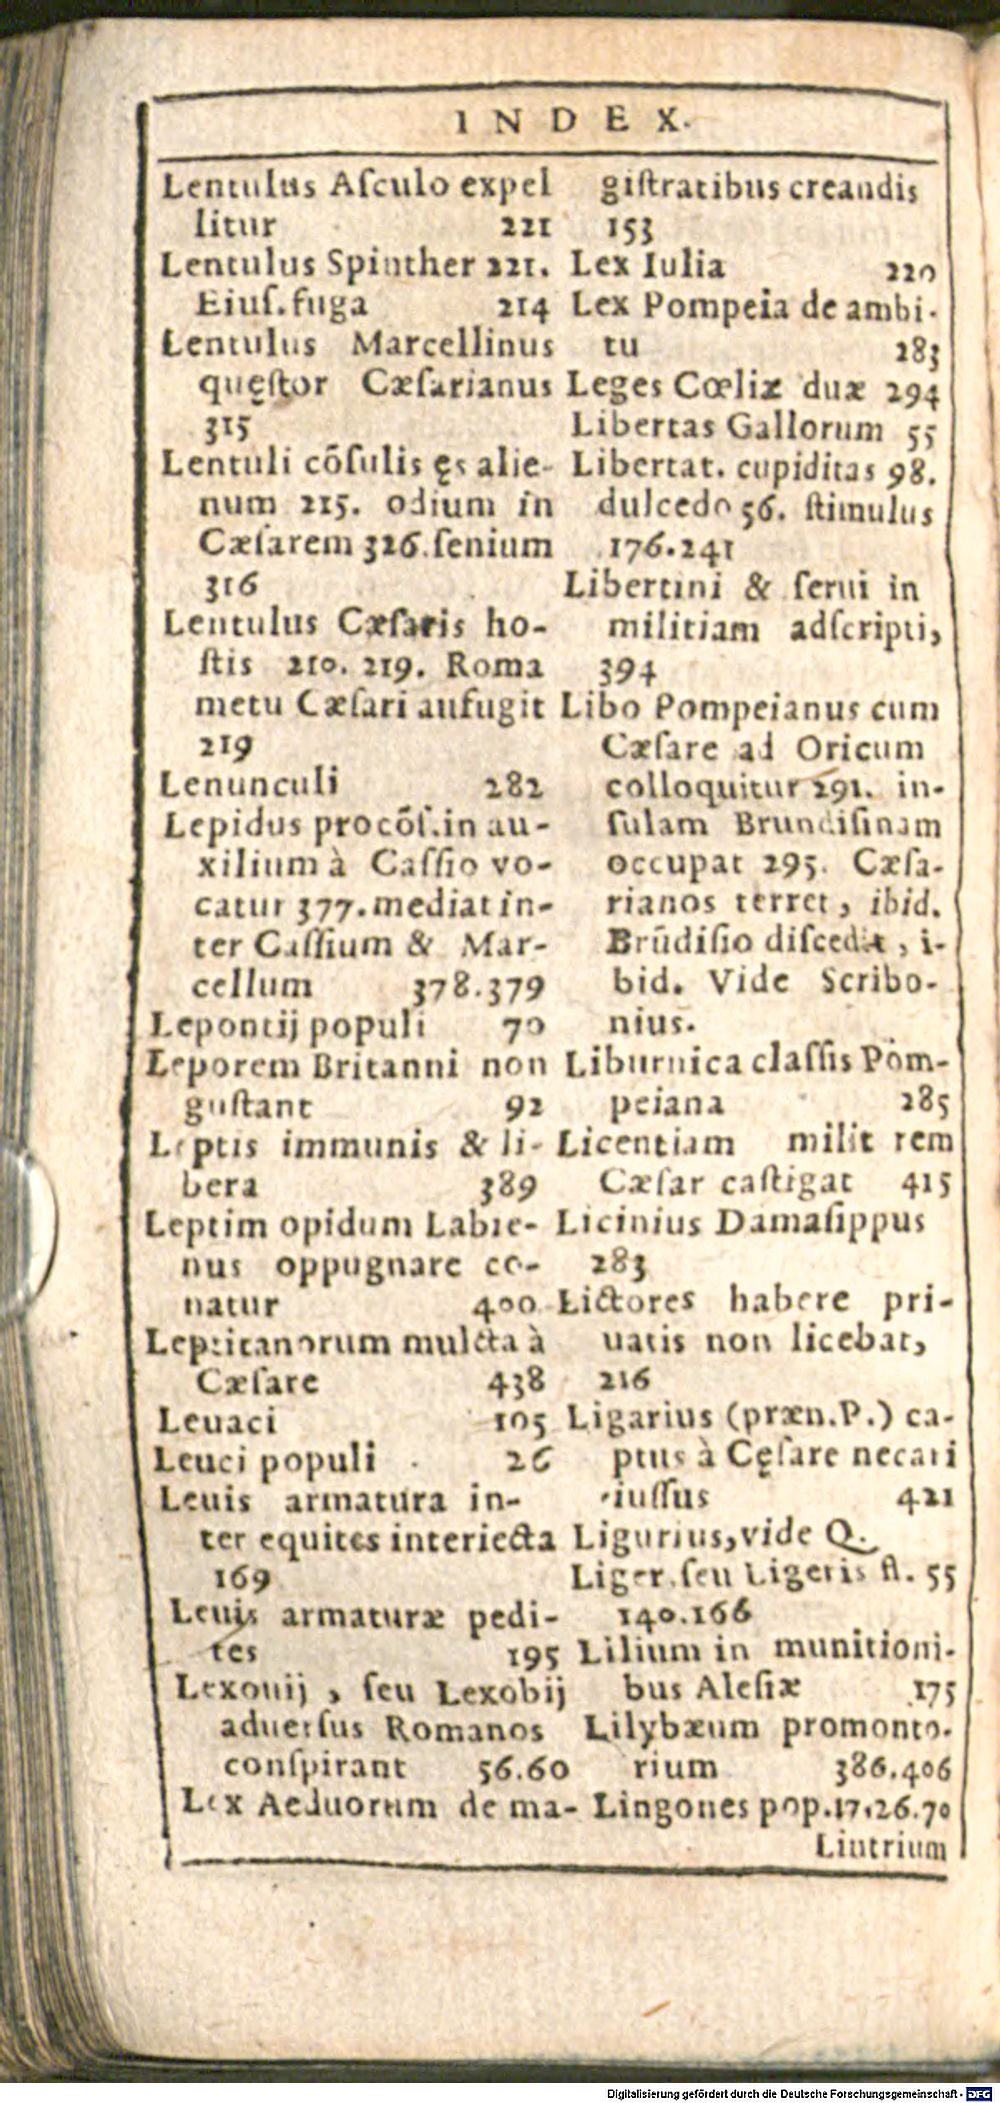 INDEX.
Lentulus Aſculo expel
litur 221
Lentulus Spinther 221.
Eiuſ. fuga 214
Lentulus Marcellinus
quęſtor Cæſarianus
315
Lentuli cõſulis ęs alie-
num 215. odium in
Cæſarem 326. ſenium
316
Lentulus Cæſaris ho-
ſtis 210. 219. Roma
metu Cæſari aufugit
219
Lenunculi 282
Lepidus procõſ. in au-
xilium à Caſſio vo-
catur 377. mediat in-
ter Caſſium & Mar-
cellum 378.379
Lepontij populi 70
Leporem Britanni non
guſtant 92
Leptis immunis & li-
bera 389
Leptim opidum Labie-
nus oppugnare co-
natur 400
Leptitanorum mulcta à
Cæſare 438
Leuaci 105
Leuci populi 26
Leuis armatura in-
ter equites interiecta
169
Leuis armaturæ pedi-
tes 195
Lexouij, ſeu Lexobij
aduerſus Romanos
conſpirant 56.60
Lex Aeduorum de ma-
giſtratibus creandis
153
Lex Iulia 220
Lex Pompeia de ambi-
tu 283
Leges Cœliæ duæ 294
Libertas Gallorum 55
Libertat. cupiditas 98.
dulcedo 56. ſtimulus
176.241
Libertini & ſerui in
militiam adſcripti,
394
Libo Pompeianus cum
Cæſare ad Oricum
colloquitur 291. in-
ſulam Brundiſinam
occupat 295. Cæſa-
rianos terret, ibid.
Brũdiſio diſcedit, i-
bid. Vide Scribo-
nius.
Liburnica claſſis Pom-
peiana 285
Licentiam milit rem
Cæſar caſtigat 415
Licinius Damaſippus
283
Lictores habere pri-
uatis non licebat,
216
Ligarius (præn. P.) ca-
ptus à Cęſare necari
iuſſus 421
Ligurius, vide Q.
Liger, ſeu Ligeris fl. 55
140.166
Lilium in munitioni-
bus Aleſiæ 175
Lilybæum promonto-
rium 386.406
Lingones pop. 17.26.70
Lintrium
Digitalisierung gefördert durch die Deutsche Forschungsgemeinschaft - DFG